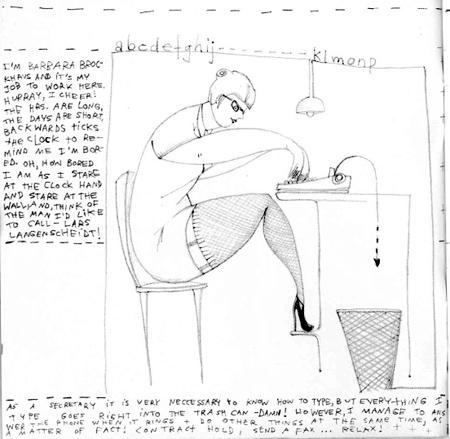 abcdefghij--------klmonp
I'M BARBARA BROC-
KHAUS AND IT'S MY
JOB TO WORK HERE.
HURRAY, I CHEER!
THE HRS. ARE LONG,
THE DAYS ARE SHORT,
BACKWARDS ticks
the CLOCK to RE-
MIND ME I'M BOR-
ED. OH, HOW BORED
I AM AS I STARE
AT THE CLOCK HAND
AND STARE AT THE
WALL, AND, THINK OF
THE MAN I'D LIKE
TO CALL - LARS
LANGENSCHEIDT!
AS A SECRETARY IT IS VERY NECCESSARY to KNOW HOW TO TYPE, BUT EVERYTHING I
TYPE GOES RIGHT INTO THE TRASH CAN - DAMN! HOWEVER, I MANAGE TO ANS
WER THE PHONE WHEN IT RINGS + DO OTHER THINGS AT THE SAME TIME, AS
A MATTER OF FACT! CONTRACT HOLD, SEND A FAX ... RELAX! + + + +